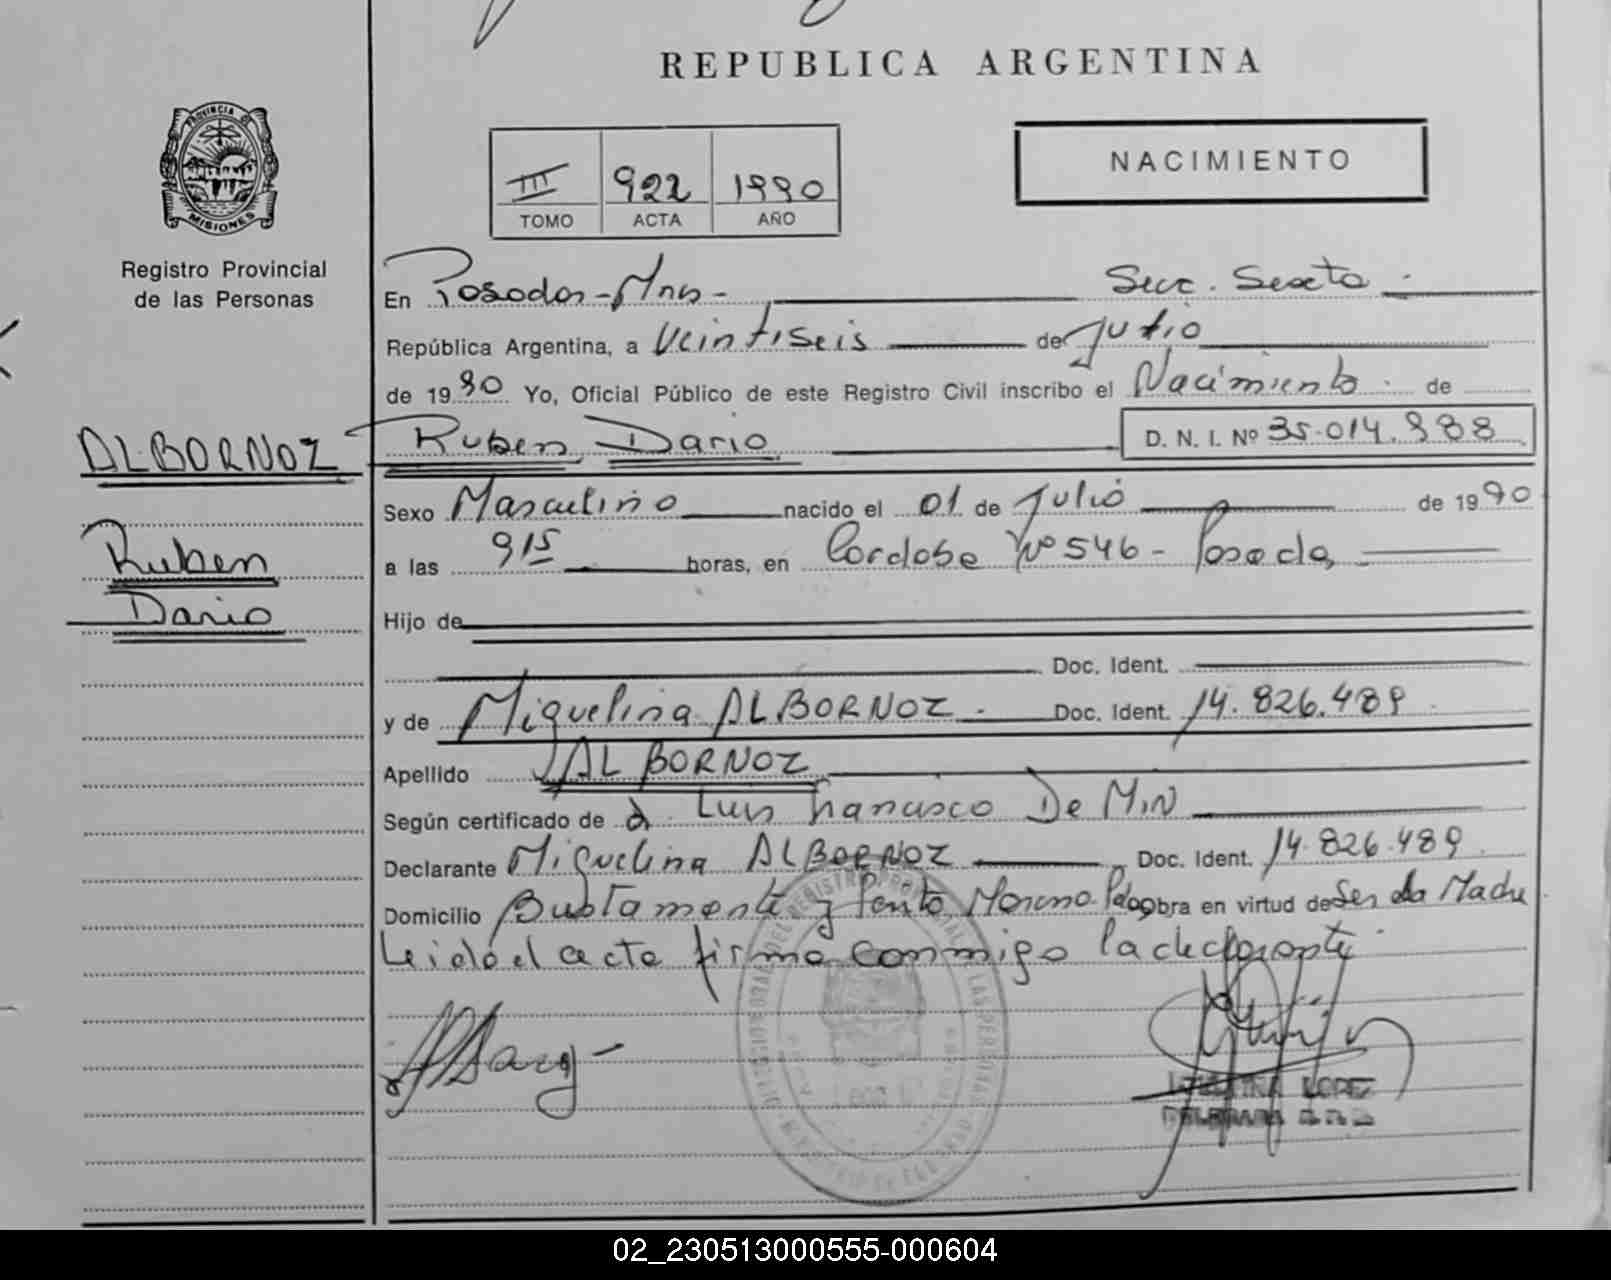 REPUBLICA ARGENTINA
PROVINCIA DE
MISIONES
Registro Provincial
de las Personas
III 922 1990
TOMO ACTA AÑO
NACIMIENTO
En Posadas - Mnes - Secc. Sexta
República Argentina, a Veintiseis de Julio
de 1990 Yo, Oficial Público de este Registro Civil inscribo el Nacimiento de
ALBORNOZ Ruben Dario D. N. I. Nº 35.014.988
Sexo Masculino nacido el 01 de Julio de 1990
Ruben
Dario
a las 915 horas, en Cordoba Nº 546 - Posadas
Hijo de
Doc. Ident.
y de Miguelina ALBORNOZ - Doc. Ident. 14.826.489
Apellido ALBORNOZ
Según certificado de Luis Francisco De MiN
Declarante Miguelina ALBORNOZ Doc. Ident. 14.826.489
Domicilio Bustamante y Moreno obra en virtud de Ser la Madre
Leido el acta firma conmigo la declarante
LOPEZ
02_230513000555-000604